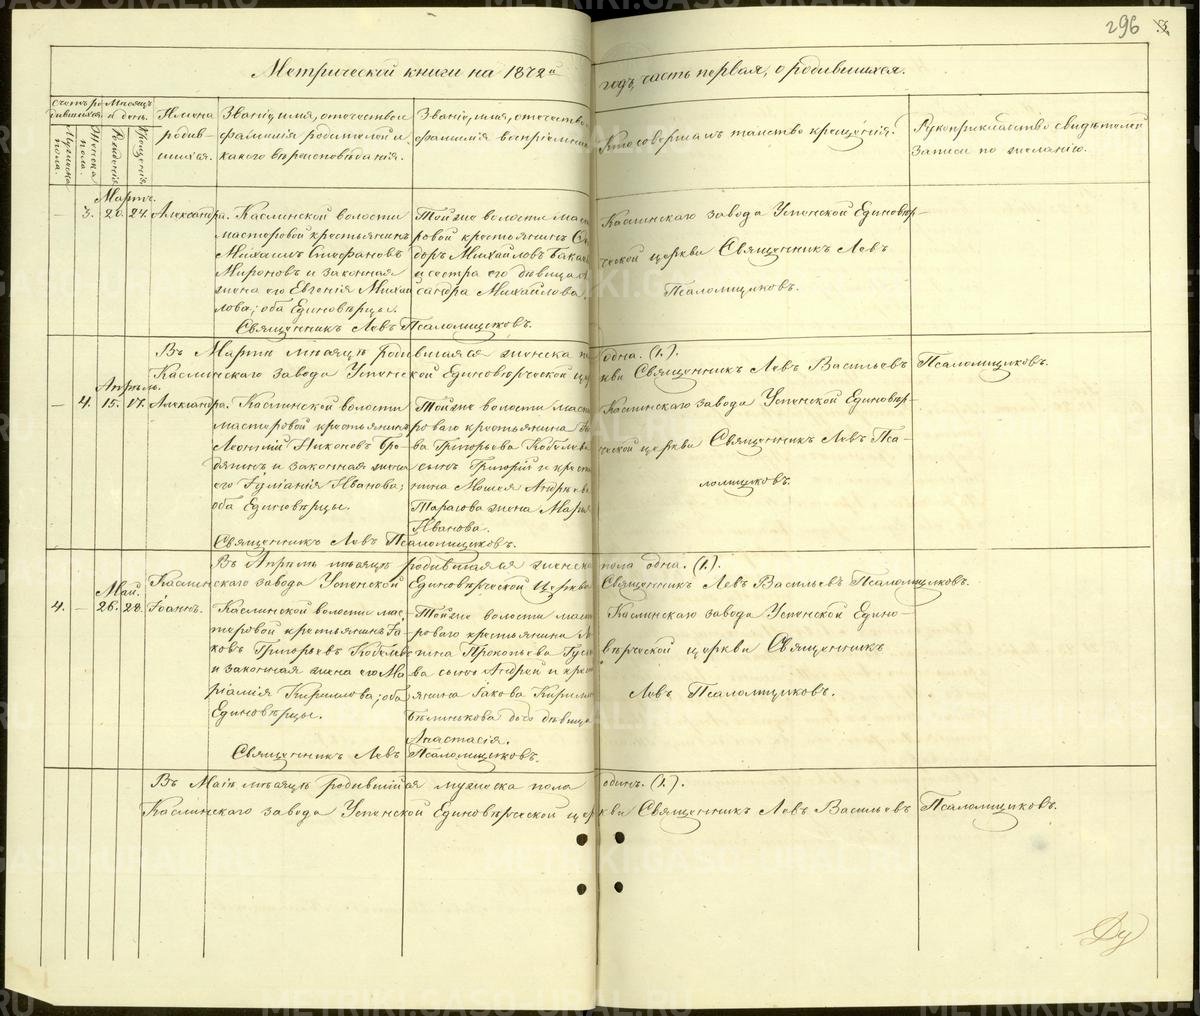 296
Метрической книги на 1872й годъ, часть первая, о родившихся.
Счетъ родившихся.
Мужеска пола.
Женска пола.
Мѣсяцъ и день.
Рожденія
Крещенія
Имена родившихся.
Званіе, имя, отчество и фамилія родителей и какого вѣроисповѣданія.
Званіе, имя, отчество фамилія воспріемни
Кто совершалъ таинство крещенія?
Рукоприкладство свидѣтелей записи по желанію.
Мартъ.
— 3. 20. 24. Александра.
Каслинской волости
мастеровой крестьянинъ
Михаилъ Стефановъ
Мироновъ и законная
жена его Евгенія Михаи
лова; оба Единовѣрцы.
Тойже волости маст
ровой крестьянинъ
доръ Михайловъ
и сестра его дѣвица
сандра Михайлова.
Священникъ Левъ Псаломщиковъ.
Каслинскаго завода Успенской Единовѣр-
ческой церкви Священникъ Левъ
Псаломщиковъ.
Въ Мартѣ мѣсяцѣ родившаяся женска по одна. (1.).
Каслинскаго завода Успенской Единовѣрческой церкви Священникъ Левъ Васильевъ Псаломщиковъ.
Апрѣль.
— 4. 15. 17. Александра.
Каслинской волости
мастеровой крестьянинъ
Леонтій Никоновъ Бро-
дягинъ и законная жена
его Іуліанія Иванова;
оба Единовѣрцы.
Тойже волости маст
роваго крестьянина
ва Григорьева Кобелева
сынъ Григорій и крест
янина Моисея Андреева
Тарасова жена Марія
Иванова.
Священникъ Левъ Псаломщиковъ.
Каслинскаго завода Успенской Единовѣр-
ческой церкви Священникъ Левъ Пса-
ломщиковъ.
Въ Апрѣлѣ мѣсяцѣ родившаяся женска пола одна. (1.).
Каслинскаго завода Успенской Единовѣрческой Церкви Священникъ Левъ Васильевъ Псаломщиковъ.
Май.
4. — 26. 28. Іоаннъ.
Каслинской волости мас-
теровой крестьянинъ Іа-
ковъ Григорьевъ Кобелевъ
и законная жена его Ма-
ріамія Кириллова; оба
Единовѣрцы.
Тойже волости маст
роваго крестьянина
пина Прокопьева
ва сынъ Андрей и крест
янина Іакова Кирилл
Блинькова дочь дѣвица
Анастасія.
Священникъ Левъ Псаломщиковъ.
Каслинскаго завода Успенской Едино-
вѣрческой церкви Священникъ
Левъ Псаломщиковъ.
Въ Маіѣ мѣсяцѣ родившійся мужеска пола одинъ. (1.).
Каслинскаго завода Успенской Единовѣрческой церкви Священникъ Левъ Васильевъ Псаломщиковъ.
METRIKI.GASO-URAL.RU